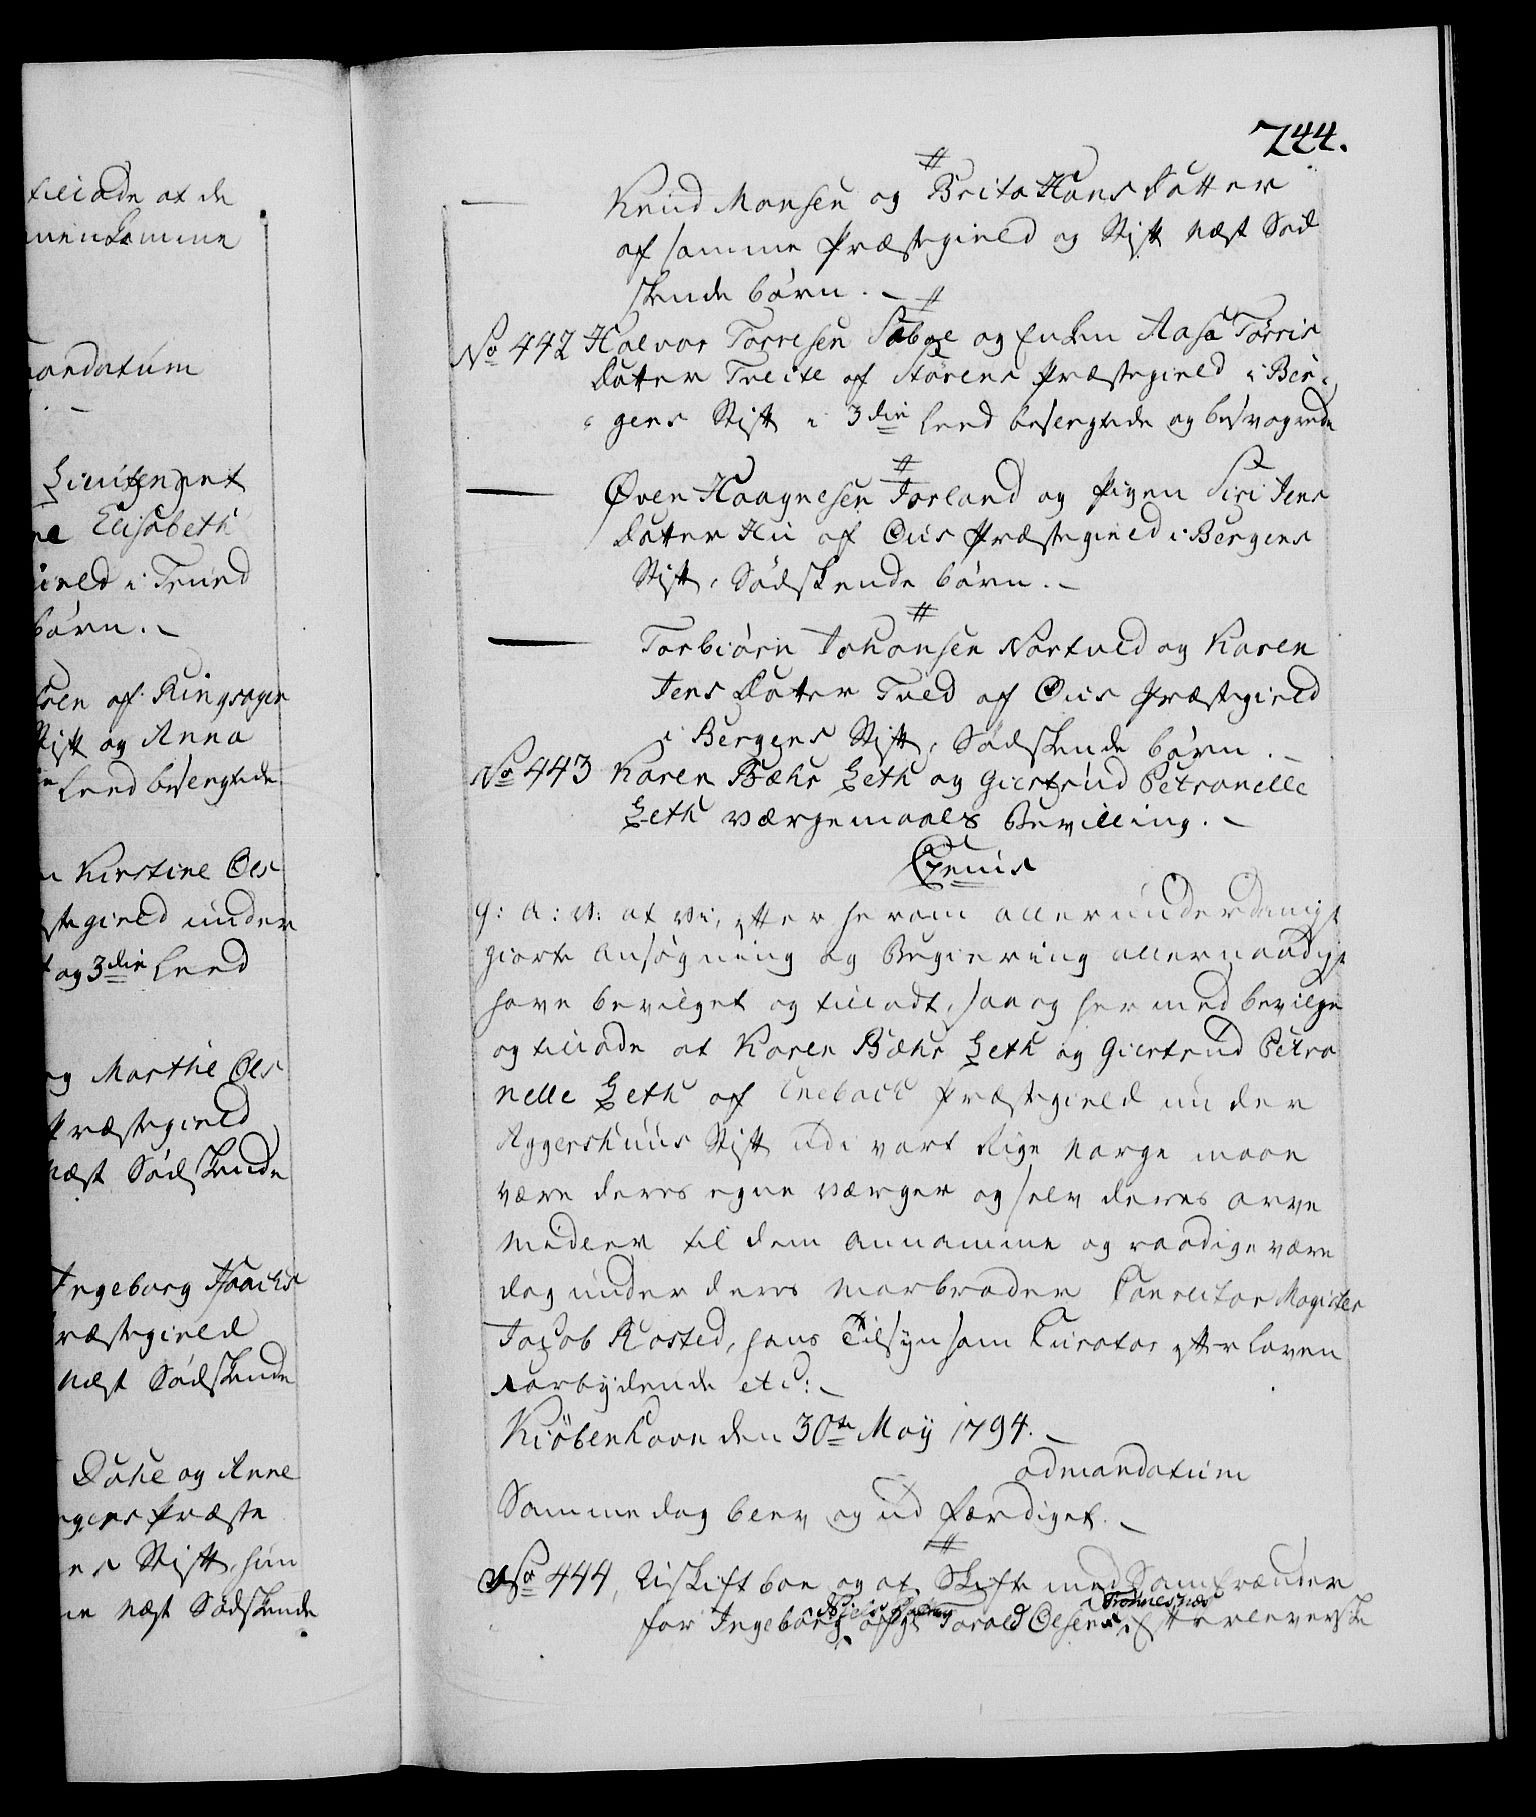 tillade at de
menkomme
mandatum
Lieutenant
ne Elisabeth
gield i Trund
børn.
sen af Ringsager
Stift og Anna
Leed besvogrede
n Kirstine Ols
stegield under
og 3die Leed
og Marthe Ols
Præstegield
næst Sødskende
Ingeborg Isaachs
Præstegield
næst Sødskende
Dahe og Anne
gers Præste
Stift, hun
ne næst Sødskende
744.
Knud Monsen og Brita Hans Datter
af samme Præstegield og Stift næst Sød
skende børn.
No 442 Halvor Torresen Sæbøe og Enken Aasa Torris
Datter Treite af Størens Præstegield i Ber
gens Stift i 3die Leed besvogrede og besvogrede
Øven Haagnesen Forland og Pigen Siri Jens
Datter Hii af Ous Præstegield i Bergens
Stift, Sødskende børn.
Torbiørn Johansen Nortved og Karen
Jens Datter Tved af Ous Præstegield
i Bergens Stift, Sødskende børn.
No 443 Karen Bæhr Leth og Giertrud Petronelle
Leth Værgemaals Bevilling.
Genus
G: A: V: at Vi, efter herom allerunderdanigst
giorte Ansøgning og Begiering allernaadigst
have bevilget og tilladt, saa og hermed bevilge
og tillade at Karen Bæhr Leth og Giertrud Petro
nelle Leth af Enebach Præstegield under
Aggershuus Stift udi vort Rige Norge maae
være deres egne Værger og selv deres Arve
Midler til dem annamme og raadige være
dog under deres Morbroder Conrector Magister
Jacob Rosted, hans Tilsyn som Curator efter Loven
Forbydende etc:
Kiöbenhavn den 30te May 1794.
ad mandatum
Samme dag blev og udfærdiget.
No 444, Uskift boe og at Skifte med Samfrænder
Niels Datter Tromesnæs
for Ingeborg afg: Torald Olsens Efterleverske